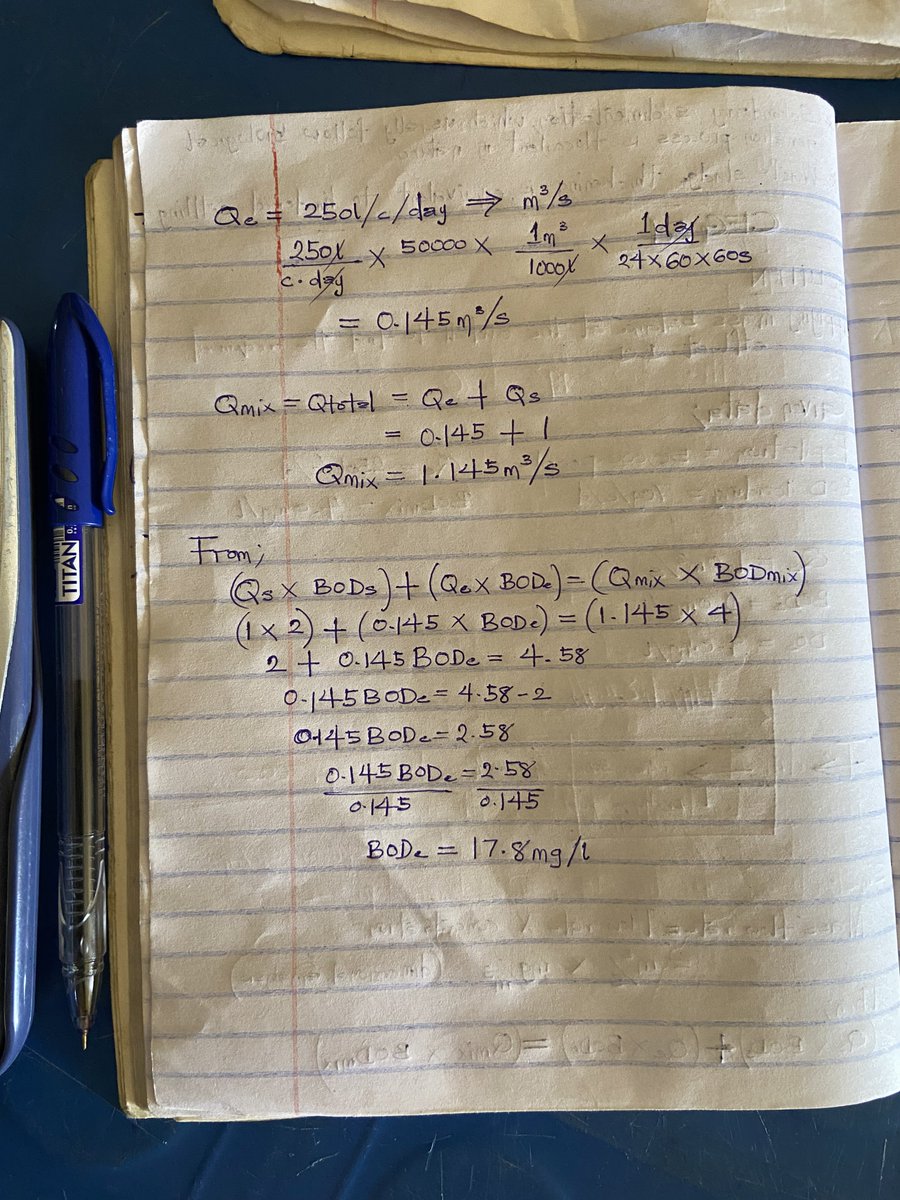 Qe = 250l/c/day ⇒ m³/s
250l/c·day × 50000 × 1m³/1000l × 1day/24×60×60s
= 0.145m³/s
Qmix = Qtotal = Qe + Qs
= 0.145 + 1
Qmix = 1.145m³/s
From;
(Qs × BODs) + (Qe × BODe) = (Qmix × BODmix)
(1 × 2) + (0.145 × BODe) = (1.145 × 4)
2 + 0.145 BODe = 4.58
0.145 BODe = 4.58 - 2
0.145 BODe = 2.58
0.145 BODe/0.145 = 2.58/0.145
BODe = 17.8mg/l
TITAN